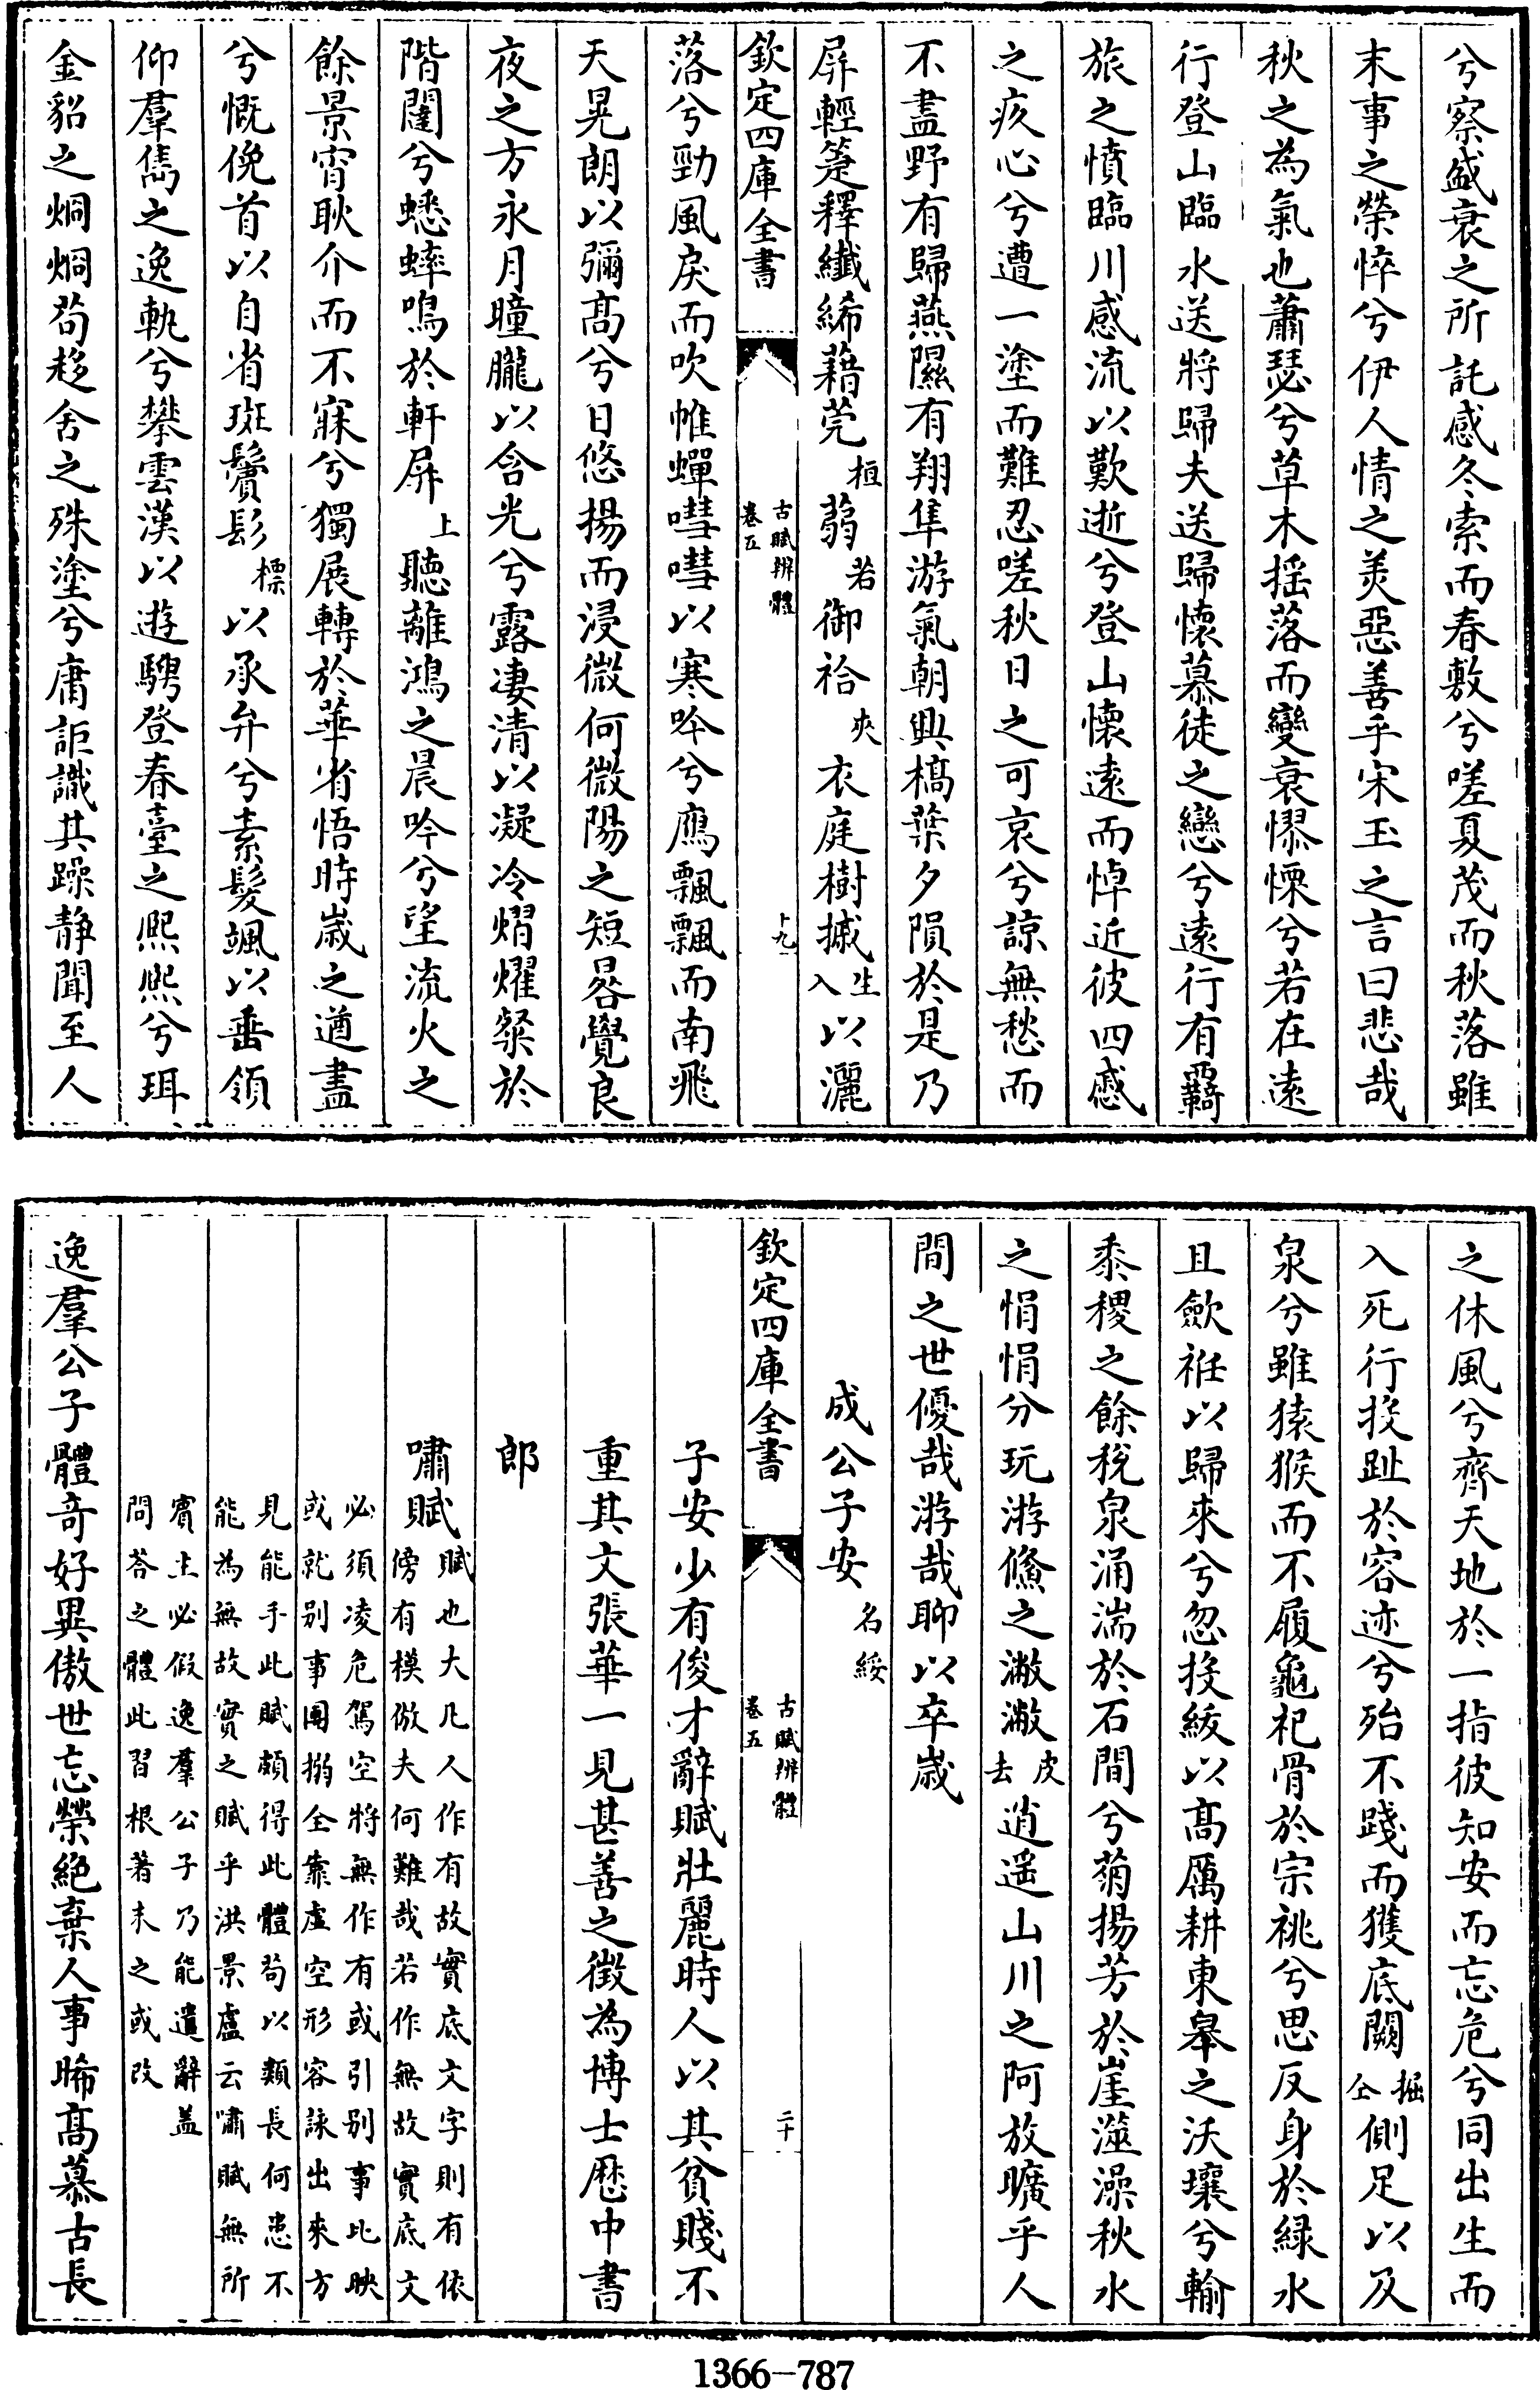 兮察盛衰之所託感冬索而春敷兮嗟夏茂而秋落雖
末事之榮悴兮伊人情之美惡善乎宋玉之言曰悲哉
秋之為氣也蕭瑟兮草木揺落而變衰憀慄兮若在逺
行登山臨水送將歸夫送歸懷慕徒之戀兮逺行有羇
旅之憤臨川感流以歎逝兮登山懷逺而悼近彼四慼
之疚心兮遭一塗而難忍嗟秋日之可哀兮諒無愁而
不盡野有歸燕隰有翔隼游氣朝興槁葉夕隕於是乃
屏輕箑釋纎絺藉莞桓蒻若御袷夾衣庭樹摵生入以灑
欽定四庫全書
古賦辨體
卷五
十九
落兮勁風戾而吹帷蟬嘒嘒以寒吟兮鴈飄飄而南飛
天晃朗以彌髙兮日悠揚而浸微何微陽之短晷覺良
夜之方永月曈朧以含光兮露凄清以凝冷熠燿粲於
階闥兮蟋蟀鳴於軒屏上聽離鴻之晨吟兮望流火之
餘景宵耿介而不寐兮獨展轉於華省悟時嵗之遒盡
兮慨俛首以自省斑鬢髟標以承弁兮素髮颯以垂領
仰羣雋之逸軌兮攀雲漢以遊騁登春臺之熙熙兮珥
金貂之烱烱茍趍舍之殊塗兮庸詎識其躁静聞至人
之休風兮齊天地於一指彼知安而忘危兮同出生而
入死行投趾於容迹兮殆不踐而獲底闕掘仝側足以及
泉兮雖猿猴而不履龜祀骨於宗祧兮思反身於緑水
且歛袵以歸來兮忽投紱以髙厲耕東皋之沃壤兮輸
黍稷之餘税泉涌湍於石間兮菊揚芳於崖澨澡秋水
之悁悁分玩游鯈之潎潎皮去逍遥山川之阿放曠乎人
間之世優哉游哉聊以卒嵗
成公子安名綏
欽定四庫全書
古賦辨體
卷五
二十
子安少有俊才辭賦壯麗時人以其貧賤不
重其文張華一見甚善之徴為博士歴中書
郎
嘯賦賦也大凡人作有故實底文字則有依
傍有模倣夫何難哉若作無故實底文
必須凌危駕空將無作有或引别事比映
或就别事團搦全靠虚空形容詠出來方
見能手此賦頗得此體茍以類長何患不
能為無故實之賦乎洪景盧云嘯賦無所
賓主必假逸羣公子乃能遣辭盖
問荅之體此習根著未之或改
逸羣公子體奇好異傲世忘榮絶棄人事晞髙慕古長
1366-787